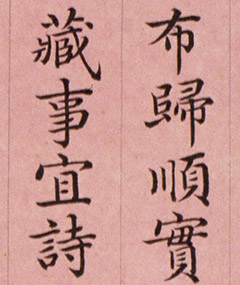 布歸順實
蕆事宜詩